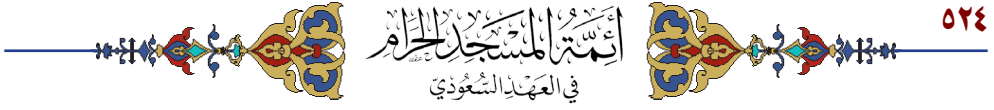 ٥٢٤
أَئِمَّةُ المَسْجِدِ الحَرَامِ
فِي العَهْدِ السُّعُودِيّ